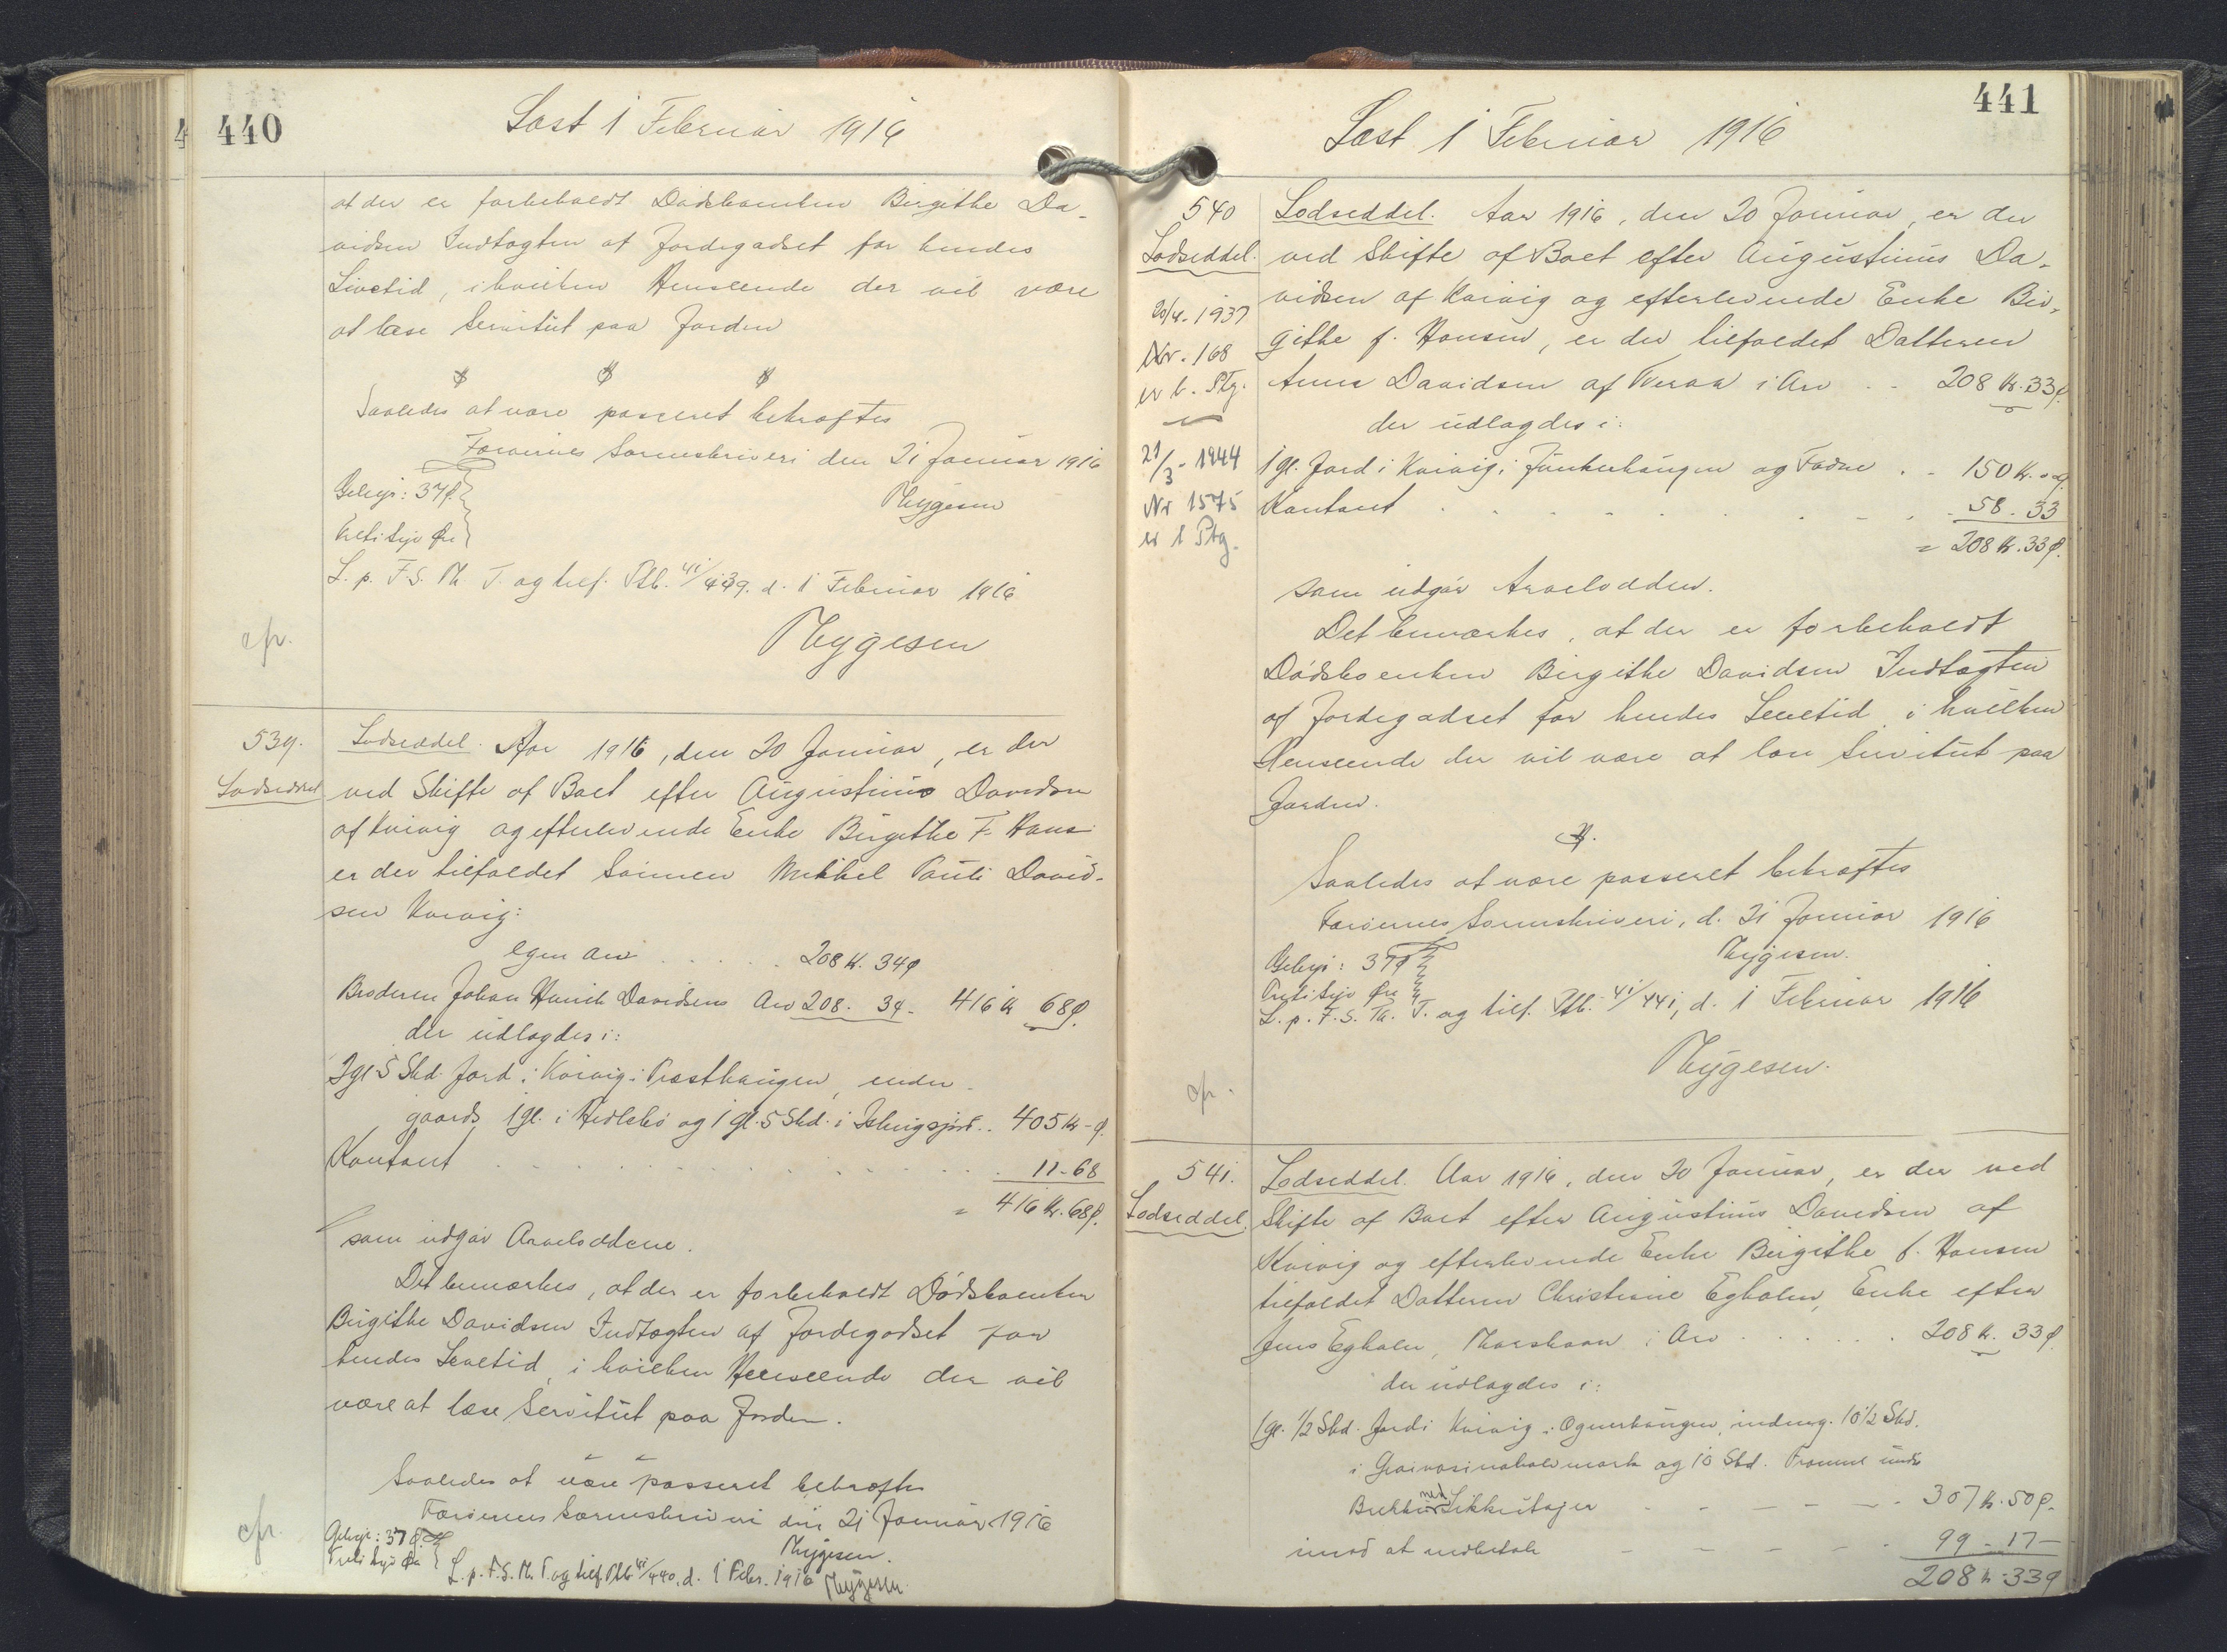 440
Læst 1 Februar 1916
at der er forbeholdt Dødsboenken Birgithe Da-
vidsen Indtægten af Jordegodset for hendes
Livstid, i hvilken Henseende der vil være
at læse Servitut paa Jorden
Saaledes at være passeret bekræftes
Færøernes Sorenskriveri den 21 Januar 1916
Gebyr: 37 Ø.
Treti Syv Øre
Mygesen
L. p. F. S. Th. T. og tilf. Ptb. 41/439. d. 1 Februar 1916
Mygesen
cfr.
539.
Lodseddel
Lodseddel. Aar 1916, den 20 Januar, er der
ved Skifte af Boet efter Augustinus Davidsen
af Kvivig og efterlevende Enke Birgithe F. Hans
er der tilfaldet Sønnen Mikkel Pauli David-
sen Kvivig:
egen Arv . . . . . 208 K. 34 Ø
Broderen Johan Henrik Davidsens Arv 208. 34 - 416 K 68 Ø.
der udlagdes i:
2 gl 5 Skd. Jord i Kvivig i Præsthaugen, under-
gaards 1 gl. i Hedlebø og 1 gl. 5 Skd. i .. 405 Kr - Ø.
Kontant . . . . . 11 - 68
= 416 Kr. 68 Ø.
som udgør Arvelodderne.
Det bemærkes, at der er forbeholdt Dødsboenken
Birgithe Davidsen Indtægten af Jordegodset for
hendes Levetid, i hvilken Henseende der vil
være at læse Servitut paa Jorden.
Saaledes at være passeret bekræftes
Færøernes Sorenskriveri den 21 Januar 1916
Gebyr: 37 Ø.
Treti Syv Øre
Mygesen.
cfr.
L. p. F. S. Th. T. og tilf. Ptb 41/440, d. 1 Febr. 1916 Mygesen
441
Læst 1 Februar 1916
540
Lodseddel.
20/4. 1937
Nr. 168
er b. Ptg.
21/3 - 1944
Nr 1575
er 1 Ptg.
Lodseddel. Aar 1916, den 20 Januar, er der
ved Skifte af Boet efter Augustinus Da-
vidsen af Kvivig og efterlevende Enke Bir-
githe f. Hansen, er der tilfaldet Datteren
Anna Davidsen af Tveraa i Arv . . 208 Kr. 33 Ø.
der udlagdes i:
1 gl. Jord i Kvivig i Junkerhaugen og . . 150 Kr. - Ø
Kontant . . . . . 58 . 33
= 208 Kr. 33 Ø.
som udgør Arvelodden.
Det bemærkes, at der er forbeholdt
Dødsboenken Birgithe Davidsen Indtægten
af Jordegodset for hendes Levetid i hvilken
Henseende der vil være at læse Servitut paa
Jorden.
Saaledes at være passeret bekræftes
Færøernes Sorenskriveri, d. 21 Januar 1916
Gebyr: 37 Ø
Treti Syv Øre
Mygesen.
L. p. F. S. Th. T. og tilf. Ptb. 41/441, d. 1 Februar 1916
Mygesen.
cfr.
541.
Lodseddel.
Lodseddel. Aar 1916, den 20 Januar, er der ved
Skifte af Boet efter Augustinus Davidsen af
Kvivig og efterlevende Enke Birgithe f. Hansen
tilfaldet Datteren Christine Egholm, Enke efter
Jens Egholm, Thorshavn i Arv . . . . . 208 K. 33 Ø.
der udlagdes i:
1 gl. 1/2 Skd. Jord i Kvivig i Ognerhaugen, underg. 10 1/2 Skd.
i og 10 Skd. Fromme under
Brekkur ned . . . . 307 Kr. 50 Ø.
imod at indbetale - - - - 99 - 17 -
208 Kr. 33 Ø